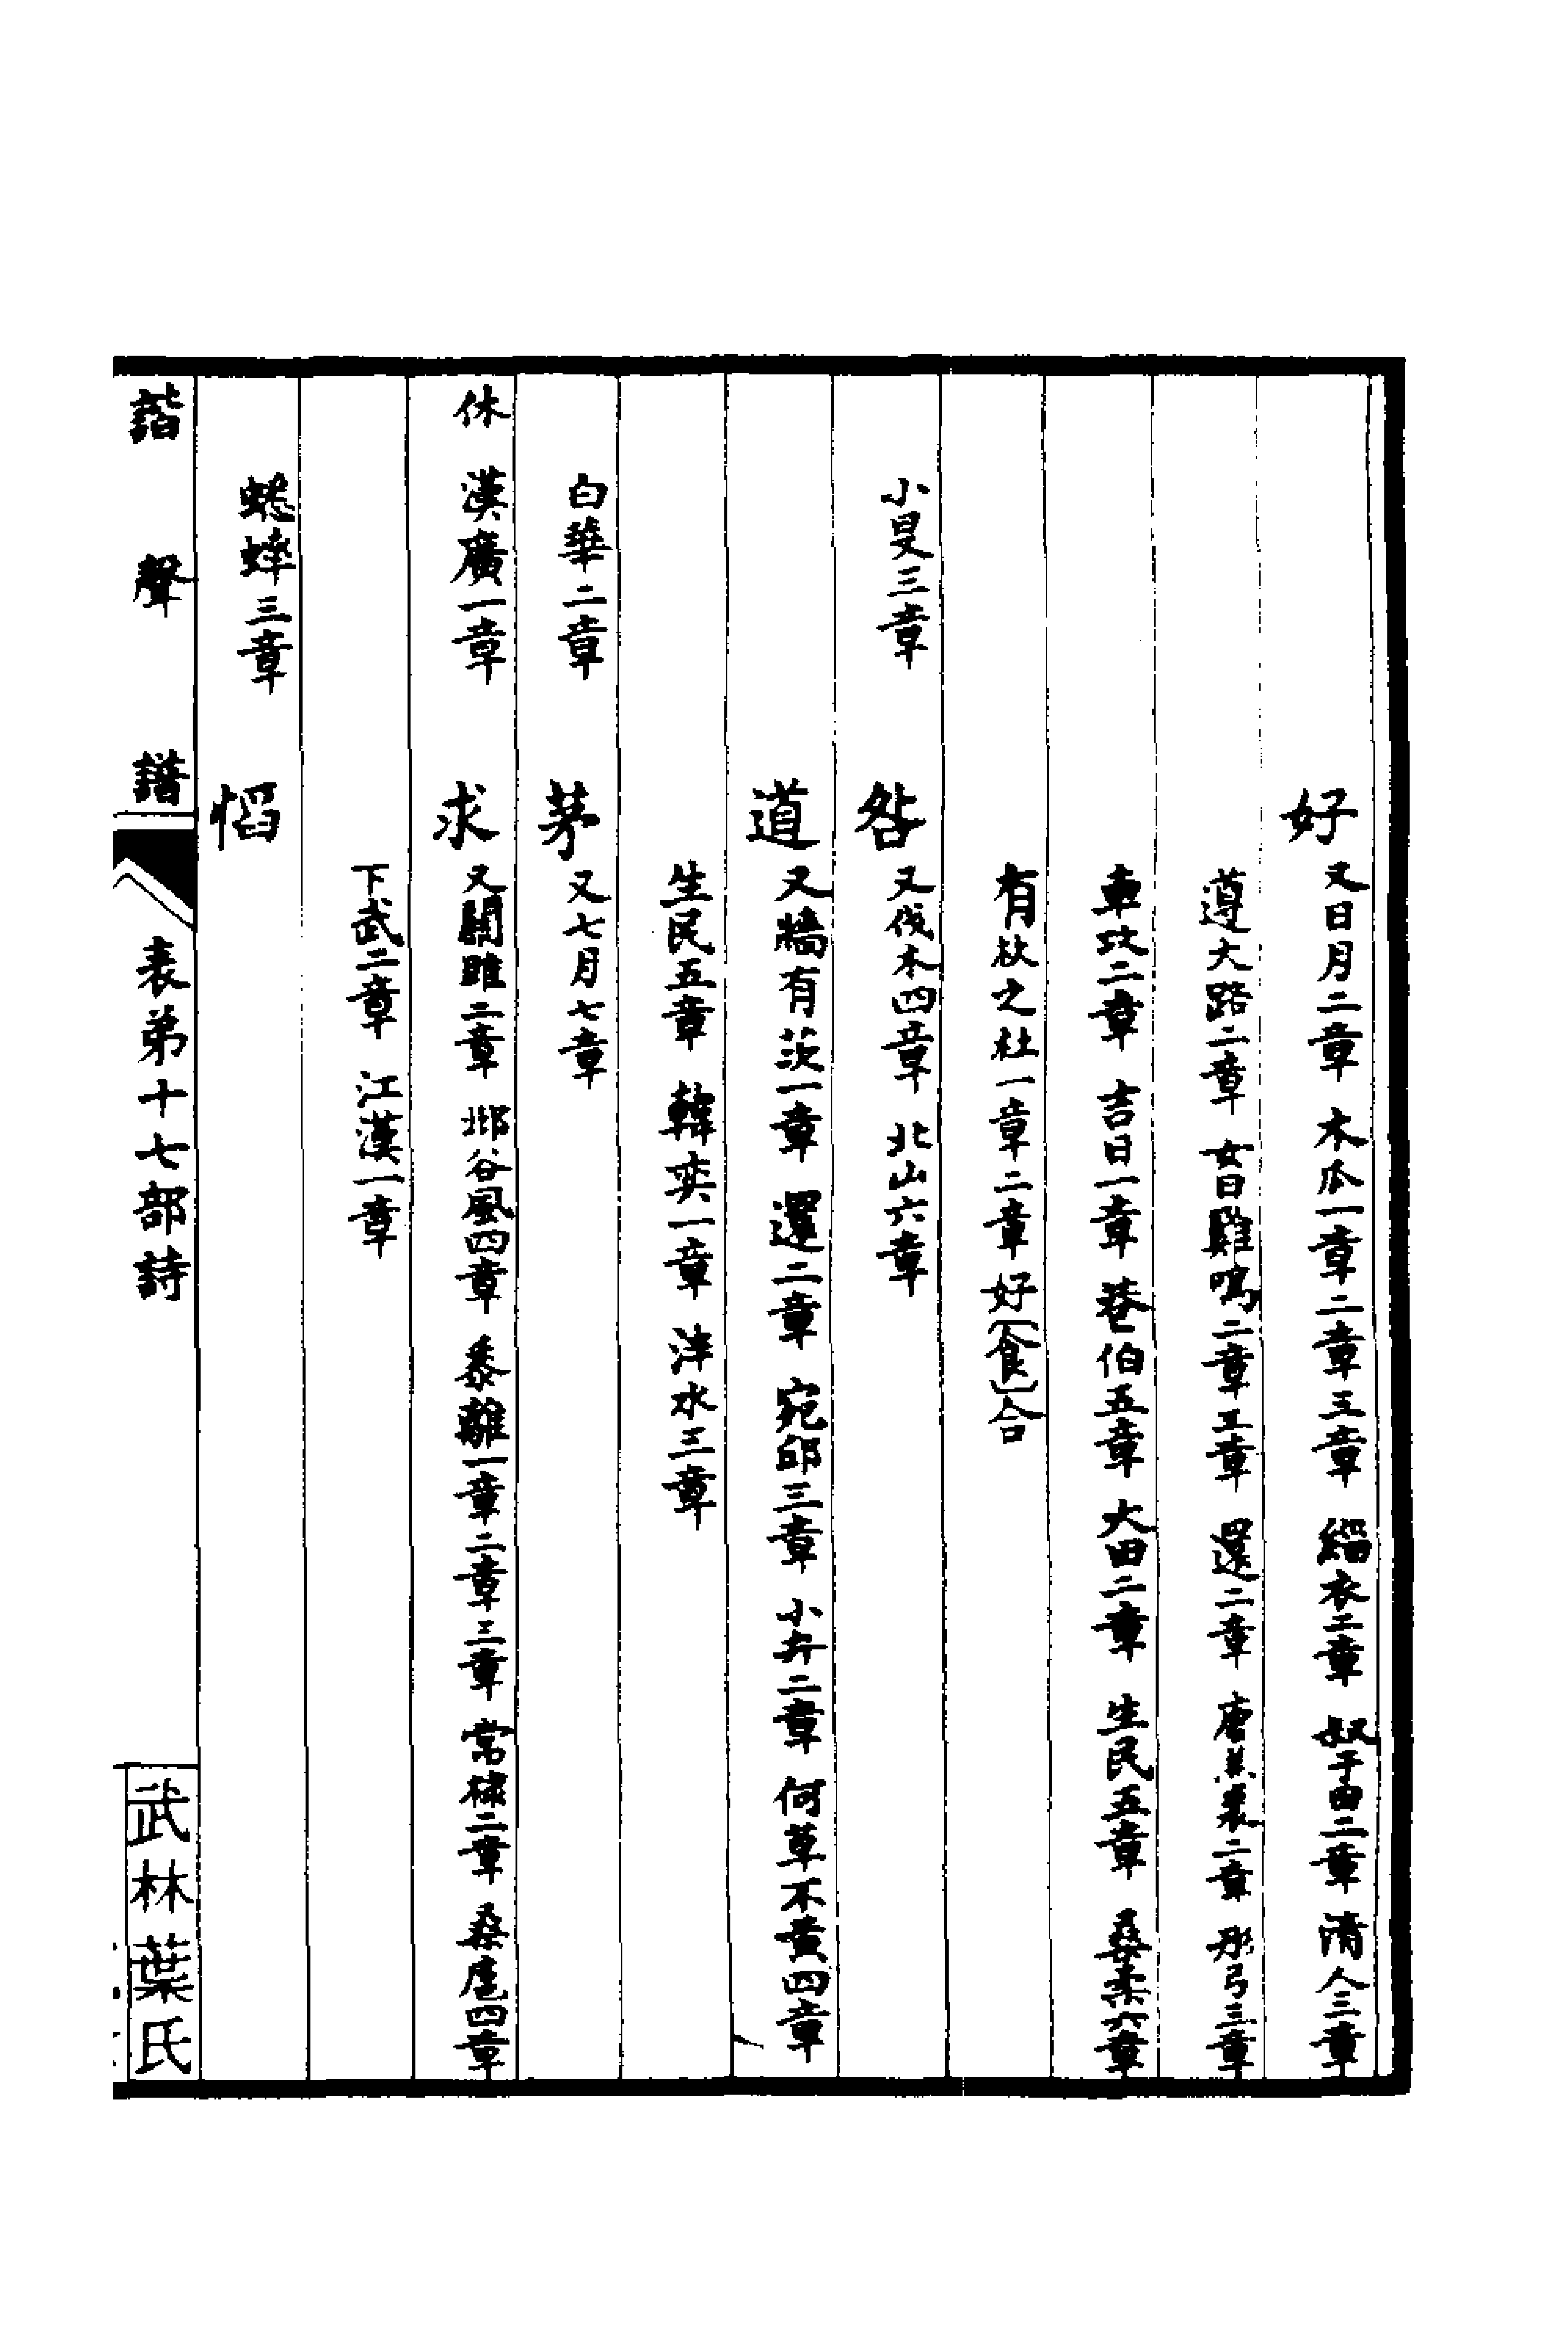 好 又日月二章 木瓜一章二章三章 緇衣二章 叔于田二章 清人三章
遵大路二章 女曰雞鳴二章三章 還二章 唐羔裘二章 彤弓三章
車攻二章 吉日一章 巷伯五章 大田二章 生民五章 桑柔六章
有杕之杜一章二章好〔食〕合
小旻三章 咎 又伐木四章 北山六章
道 又牆有茨一章 還二章 宛邱三章 小弁二章 何草不黃四章
生民五章 韓奕一章 泮水三章
白華二章 茅 又七月七章
休 漢廣一章 求 又關雎二章 邶谷風四章 黍離一章二章三章 常棣二章 桑扈四章
下武二章 江漢一章
蟋蟀三章 慆
諧聲譜 表弟十七部詩 武林葉氏